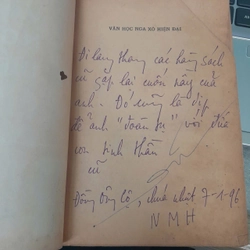 VĂN HỌC HOA KỲ HIỆN ĐẠI
Đi lang thang các hàng sách
cũ gặp lại cuốn này của
anh. Đó cũng là dịp
để anh "đoàn tụ" với đứa
con tinh thần
cũ
Đông, chủ nhật 7-1-96
NMH